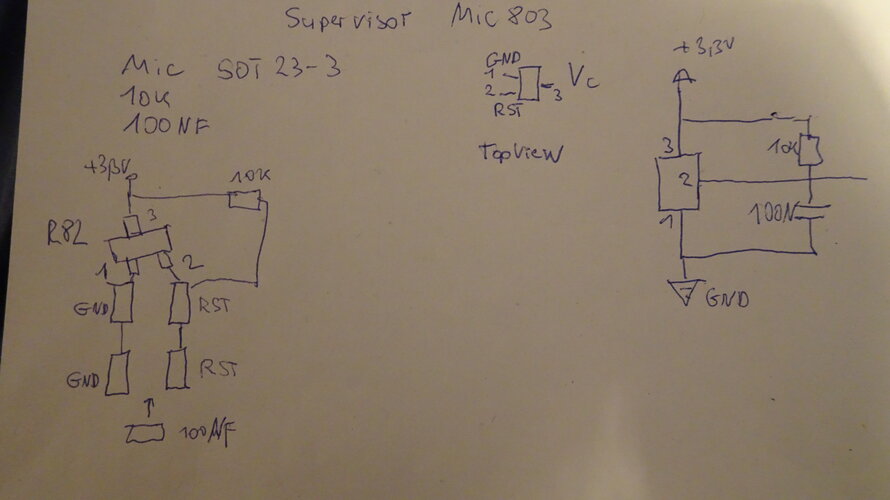 Supervisor Mic 803
Mic SOT 23-3
10K
100NF
GND
1
2
3
Vc
RST
Top View
+3,3V
10K
3
R82
1
2
GND
RST
GND
RST
100NF
+3,3V
3
10K
2
100N
1
GND